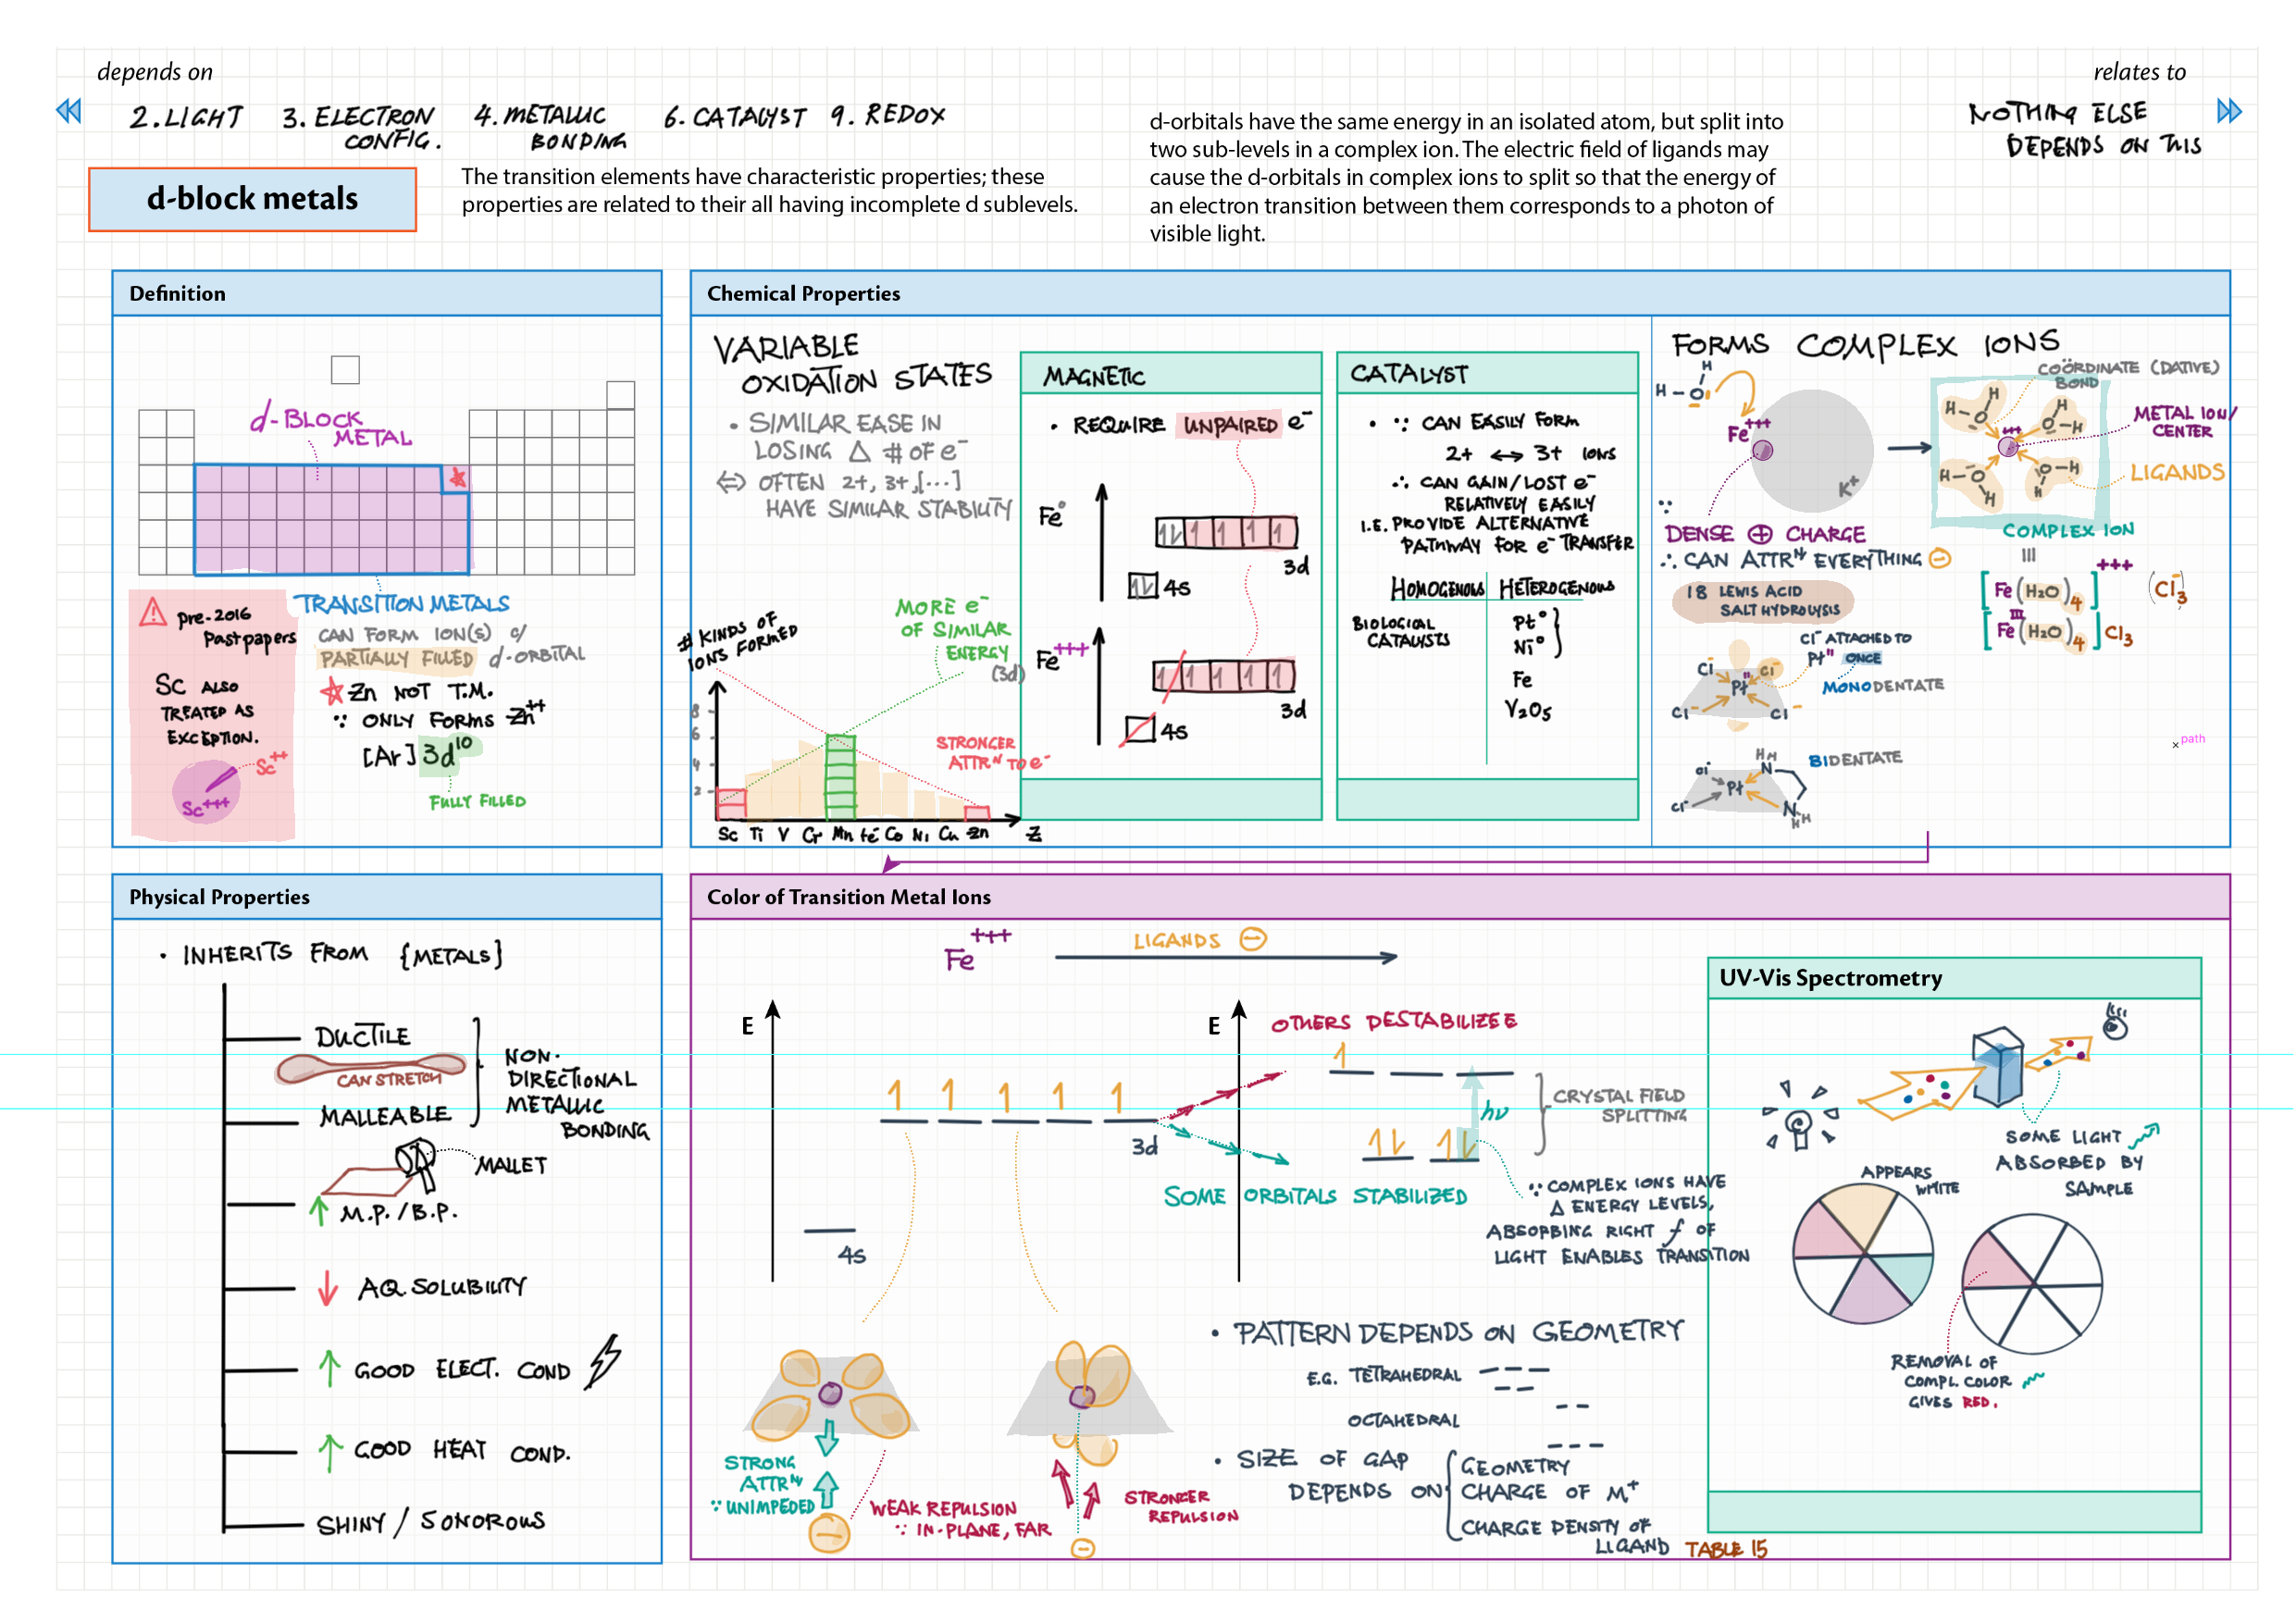 depends on
relates to
2. LIGHT 3. ELECTRON CONFIG. 4. METALLIC BONDING 6. CATALYST 9. REDOX
NOTHING ELSE
DEPENDS ON THIS
d-block metals
The transition elements have characteristic properties; these
properties are related to their all having incomplete d sublevels.
d-orbitals have the same energy in an isolated atom, but split into
two sub-levels in a complex ion. The electric field of ligands may
cause the d-orbitals in complex ions to split so that the energy of
an electron transition between them corresponds to a photon of
visible light.
Definition
d-BLOCK
METAL
TRANSITION METALS
CAN FORM ION(S) c/
PARTIALLY FILLED d-ORBITAL
☆ Zn NOT T.M.
∵ ONLY FORMS Zn++
[Ar] 3d10
FULLY FILLED
Pre-2016
Past papers
Sc ALSO
TREATED AS
EXCEPTION.
Sc++
Sc+++
Chemical Properties
VARIABLE
OXIDATION STATES
• SIMILAR EASE IN
LOSING Δ # OF e-
⇔ OFTEN 2+, 3+, [...]
HAVE SIMILAR STABILITY
# KINDS OF
IONS FORMED
MORE e-
OF SIMILAR
ENERGY
(3d)
STRONGER
ATTRN TO e-
8
6
4
2
Sc Ti V Cr Mn Fe Co Ni Cu Zn Z
MAGNETIC
• REQUIRE UNPAIRED e-
Fe°
3d
4s
Fe+++
3d
4s
CATALYST
• ∵ CAN EASILY FORM
2+ ↔ 3+ IONS
∴ CAN GAIN/LOST e-
RELATIVELY EASILY
I.E. PROVIDE ALTERNATIVE
PATHWAY FOR e- TRANSFER
HOMOGENOUS HETEROGENOUS
BIOLOGICAL
CATALYSTS
Pt°
Ni°
Fe
V2O5
FORMS COMPLEX IONS
H
H-O
Fe+++
K+
∵
DENSE ⊕ CHARGE
∴ CAN ATTRN EVERYTHING ⊖
COÖRDINATE (DATIVE)
BOND
H-O H
H O-H
H-O H
O-H H
+++
METAL ION/
CENTER
LIGANDS
COMPLEX ION
[Fe(H2O)4]+++ (Cl-3)
[FeIII(H2O)4]Cl3
18 LEWIS ACID
SALT HYDROLYSIS
Cl- Cl-
PtII
Cl- Cl-
Cl- ATTACHED TO
PtII ONCE
MONODENTATE
BIDENTATE
Cl- Pt N H H
Cl- N H H
path
Physical Properties
• INHERITS FROM {METALS}
DUCTILE
CAN STRETCH
MALLEABLE
NON-
DIRECTIONAL
METALLIC
BONDING
MALLET
↑ M.P./B.P.
↓ AQ. SOLUBILITY
↑ GOOD ELECT. COND
↑ GOOD HEAT COND.
SHINY / SONOROUS
Color of Transition Metal Ions
Fe+++ LIGANDS ⊖
E
3d
4s
E
OTHERS DESTABILIZEE
SOME ORBITALS STABILIZED
hν
CRYSTAL FIELD
SPLITTING
∵ COMPLEX IONS HAVE
Δ ENERGY LEVELS,
ABSORBING RIGHT f OF
LIGHT ENABLES TRANSITION
STRONG
ATTRN
∵ UNIMPEDED
WEAK REPULSION
∵ IN-PLANE, FAR
STRONGER
REPULSION
• PATTERN DEPENDS ON GEOMETRY
E.G. TETRAHEDRAL
OCTAHEDRAL
• SIZE OF GAP
DEPENDS ON
GEOMETRY
CHARGE OF M+
CHARGE DENSITY OF
LIGAND
TABLE 15
UV-Vis Spectrometry
SOME LIGHT
ABSORBED BY
SAMPLE
APPEARS
WHITE
REMOVAL OF
COMPL. COLOR
GIVES RED.